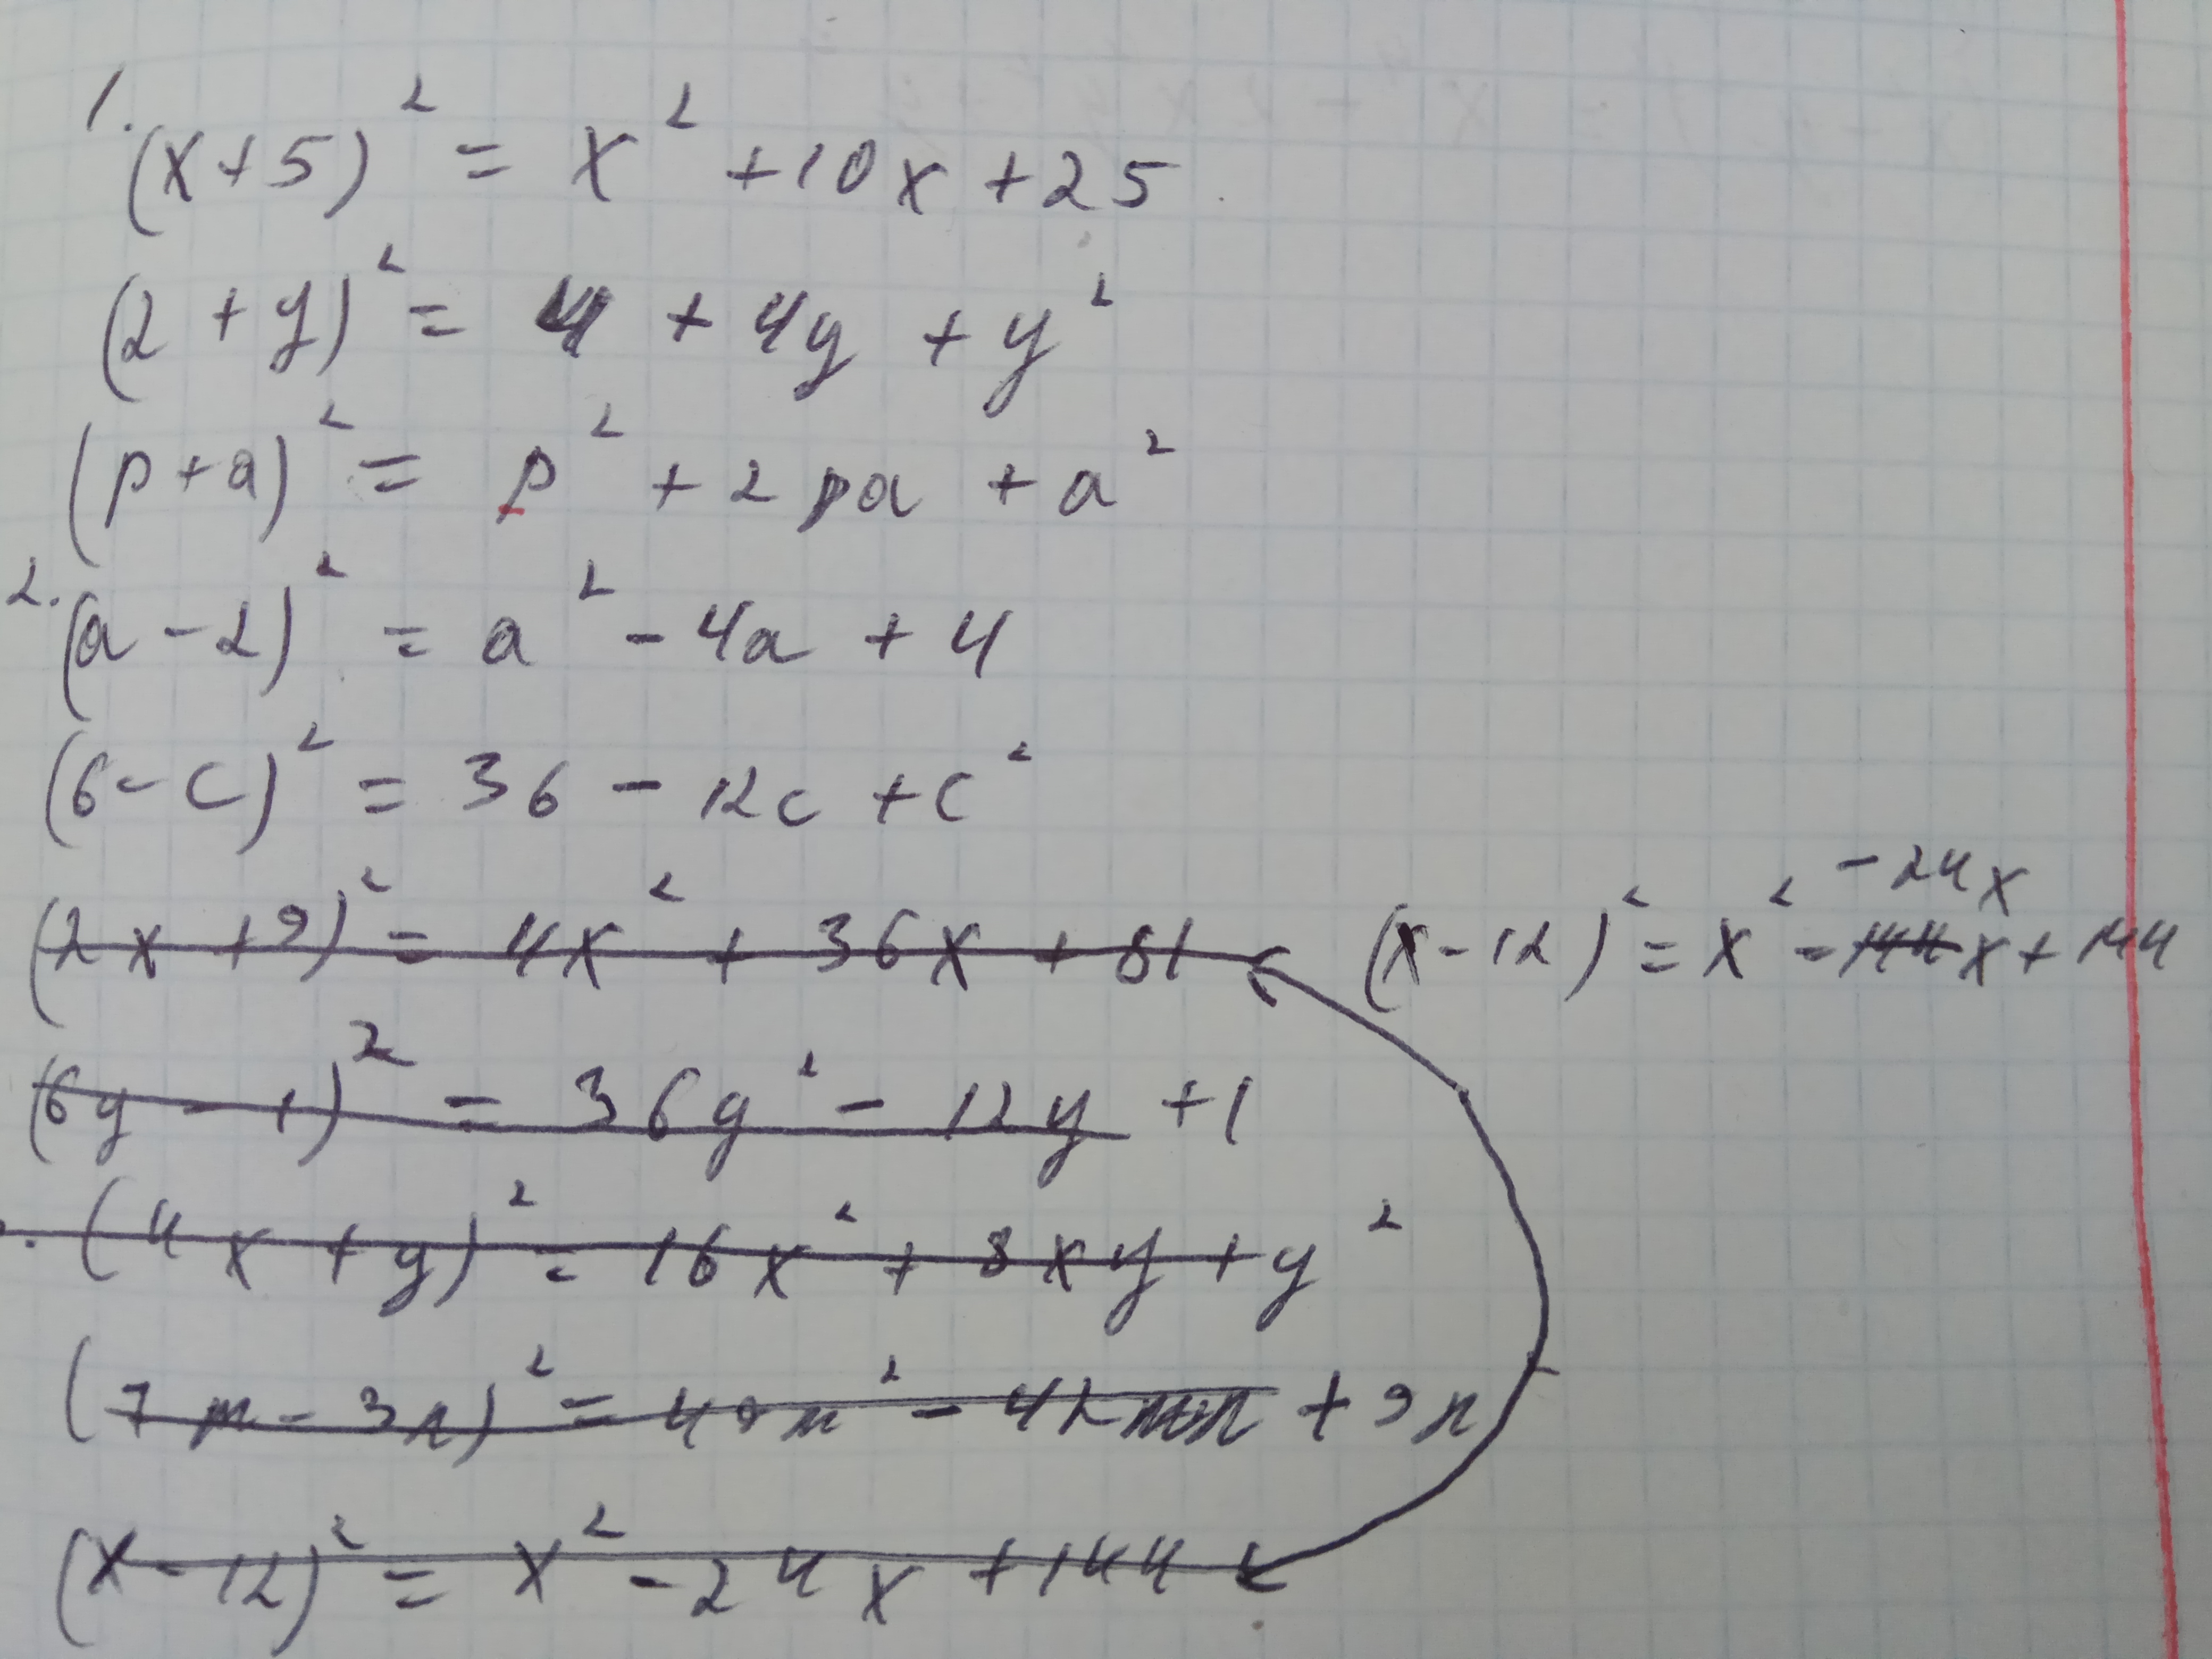 1.
(x+5)² = x² +10x +25
(2 + y)² = 4 + 4y + y²
(p+a)² = p² + 2pa + a²
2. (a - 2)² = a² - 4a + 4
(6 - c)² = 36 - 12c + c²
(2x + 9)² = 4x² + 36x + 81
-24x
(x - 12)² = x² - 144x + 144
(6y - 1)² = 36y² - 12y + 1
. (4x + y)² = 16x² + 8xy + y²
(7m - 3n)² = 49m² - 42mn + 9n
(x - 12)² = x² - 24x + 144